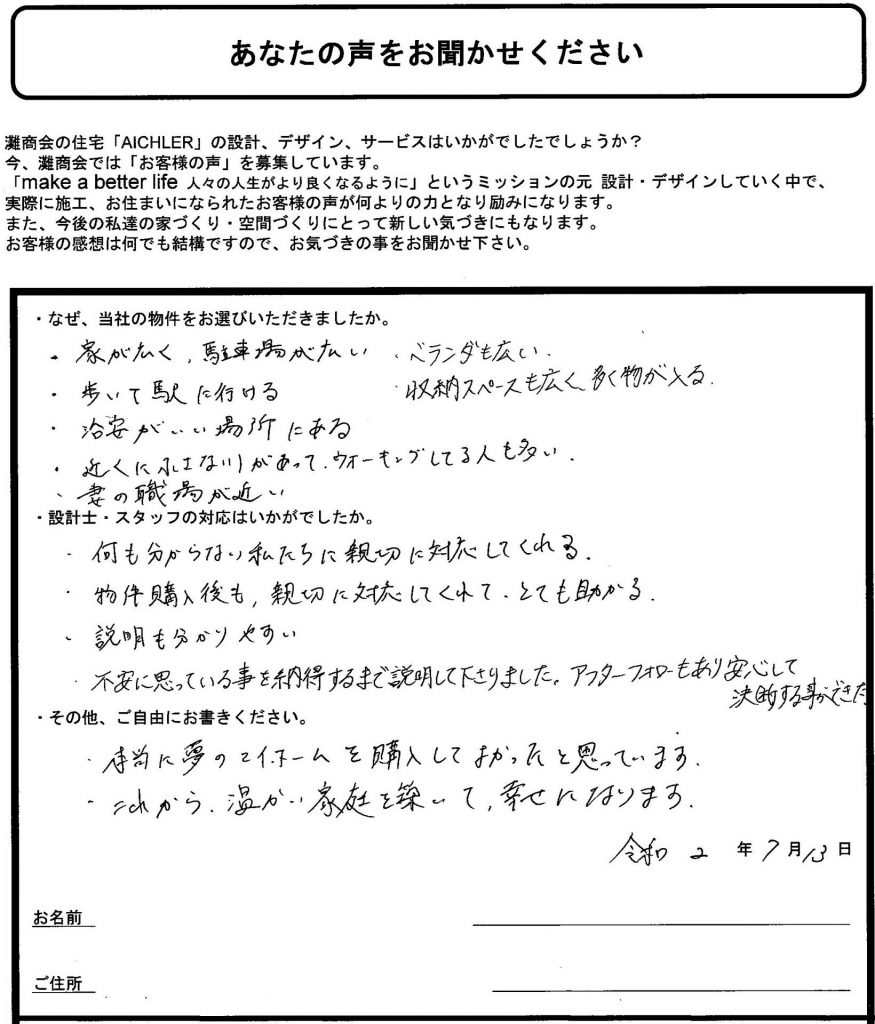 あなたの声をお聞かせください
灘商会の住宅「AICHLER」の設計、デザイン、サービスはいかがでしたでしょうか？
今、灘商会では「お客様の声」を募集しています。
「make a better life 人々の人生がより良くなるように」というミッションの元 設計・デザインしていく中で、
実際に施工、お住まいになられたお客様の声が何よりの力となり励みになります。
また、今後の私達の家づくり・空間づくりにとって新しい気づきにもなります。
お客様の感想は何でも結構ですので、お気づきの事をお聞かせ下さい。
・なぜ、当社の物件をお選びいただきましたか。
・家が広く、駐車場が広い ・ベランダも広い.
・歩いて駅に行ける ・収納スペースも広く、多く物が入る.
・治安がいい場所にある
・近くに小さな川があって、ウォーキングしてる人も多い.
・妻の職場が近い
・設計士・スタッフの対応はいかがでしたか。
・何も分からない私たちに親切に対応してくれる.
・物件購入後も、親切に対応してくれて、とても助かる.
・説明も分かりやすい
・不安に思っている事を納得するまで説明して下さりました。アフターフォローもあり安心して
決断する事ができた
・その他、ご自由にお書きください。
・本当に夢のマイホームを購入してよかったと思っています.
・これから、温かい家庭を築いて、幸せになります.
令和 2 年 7 月 13 日
お名前
ご住所